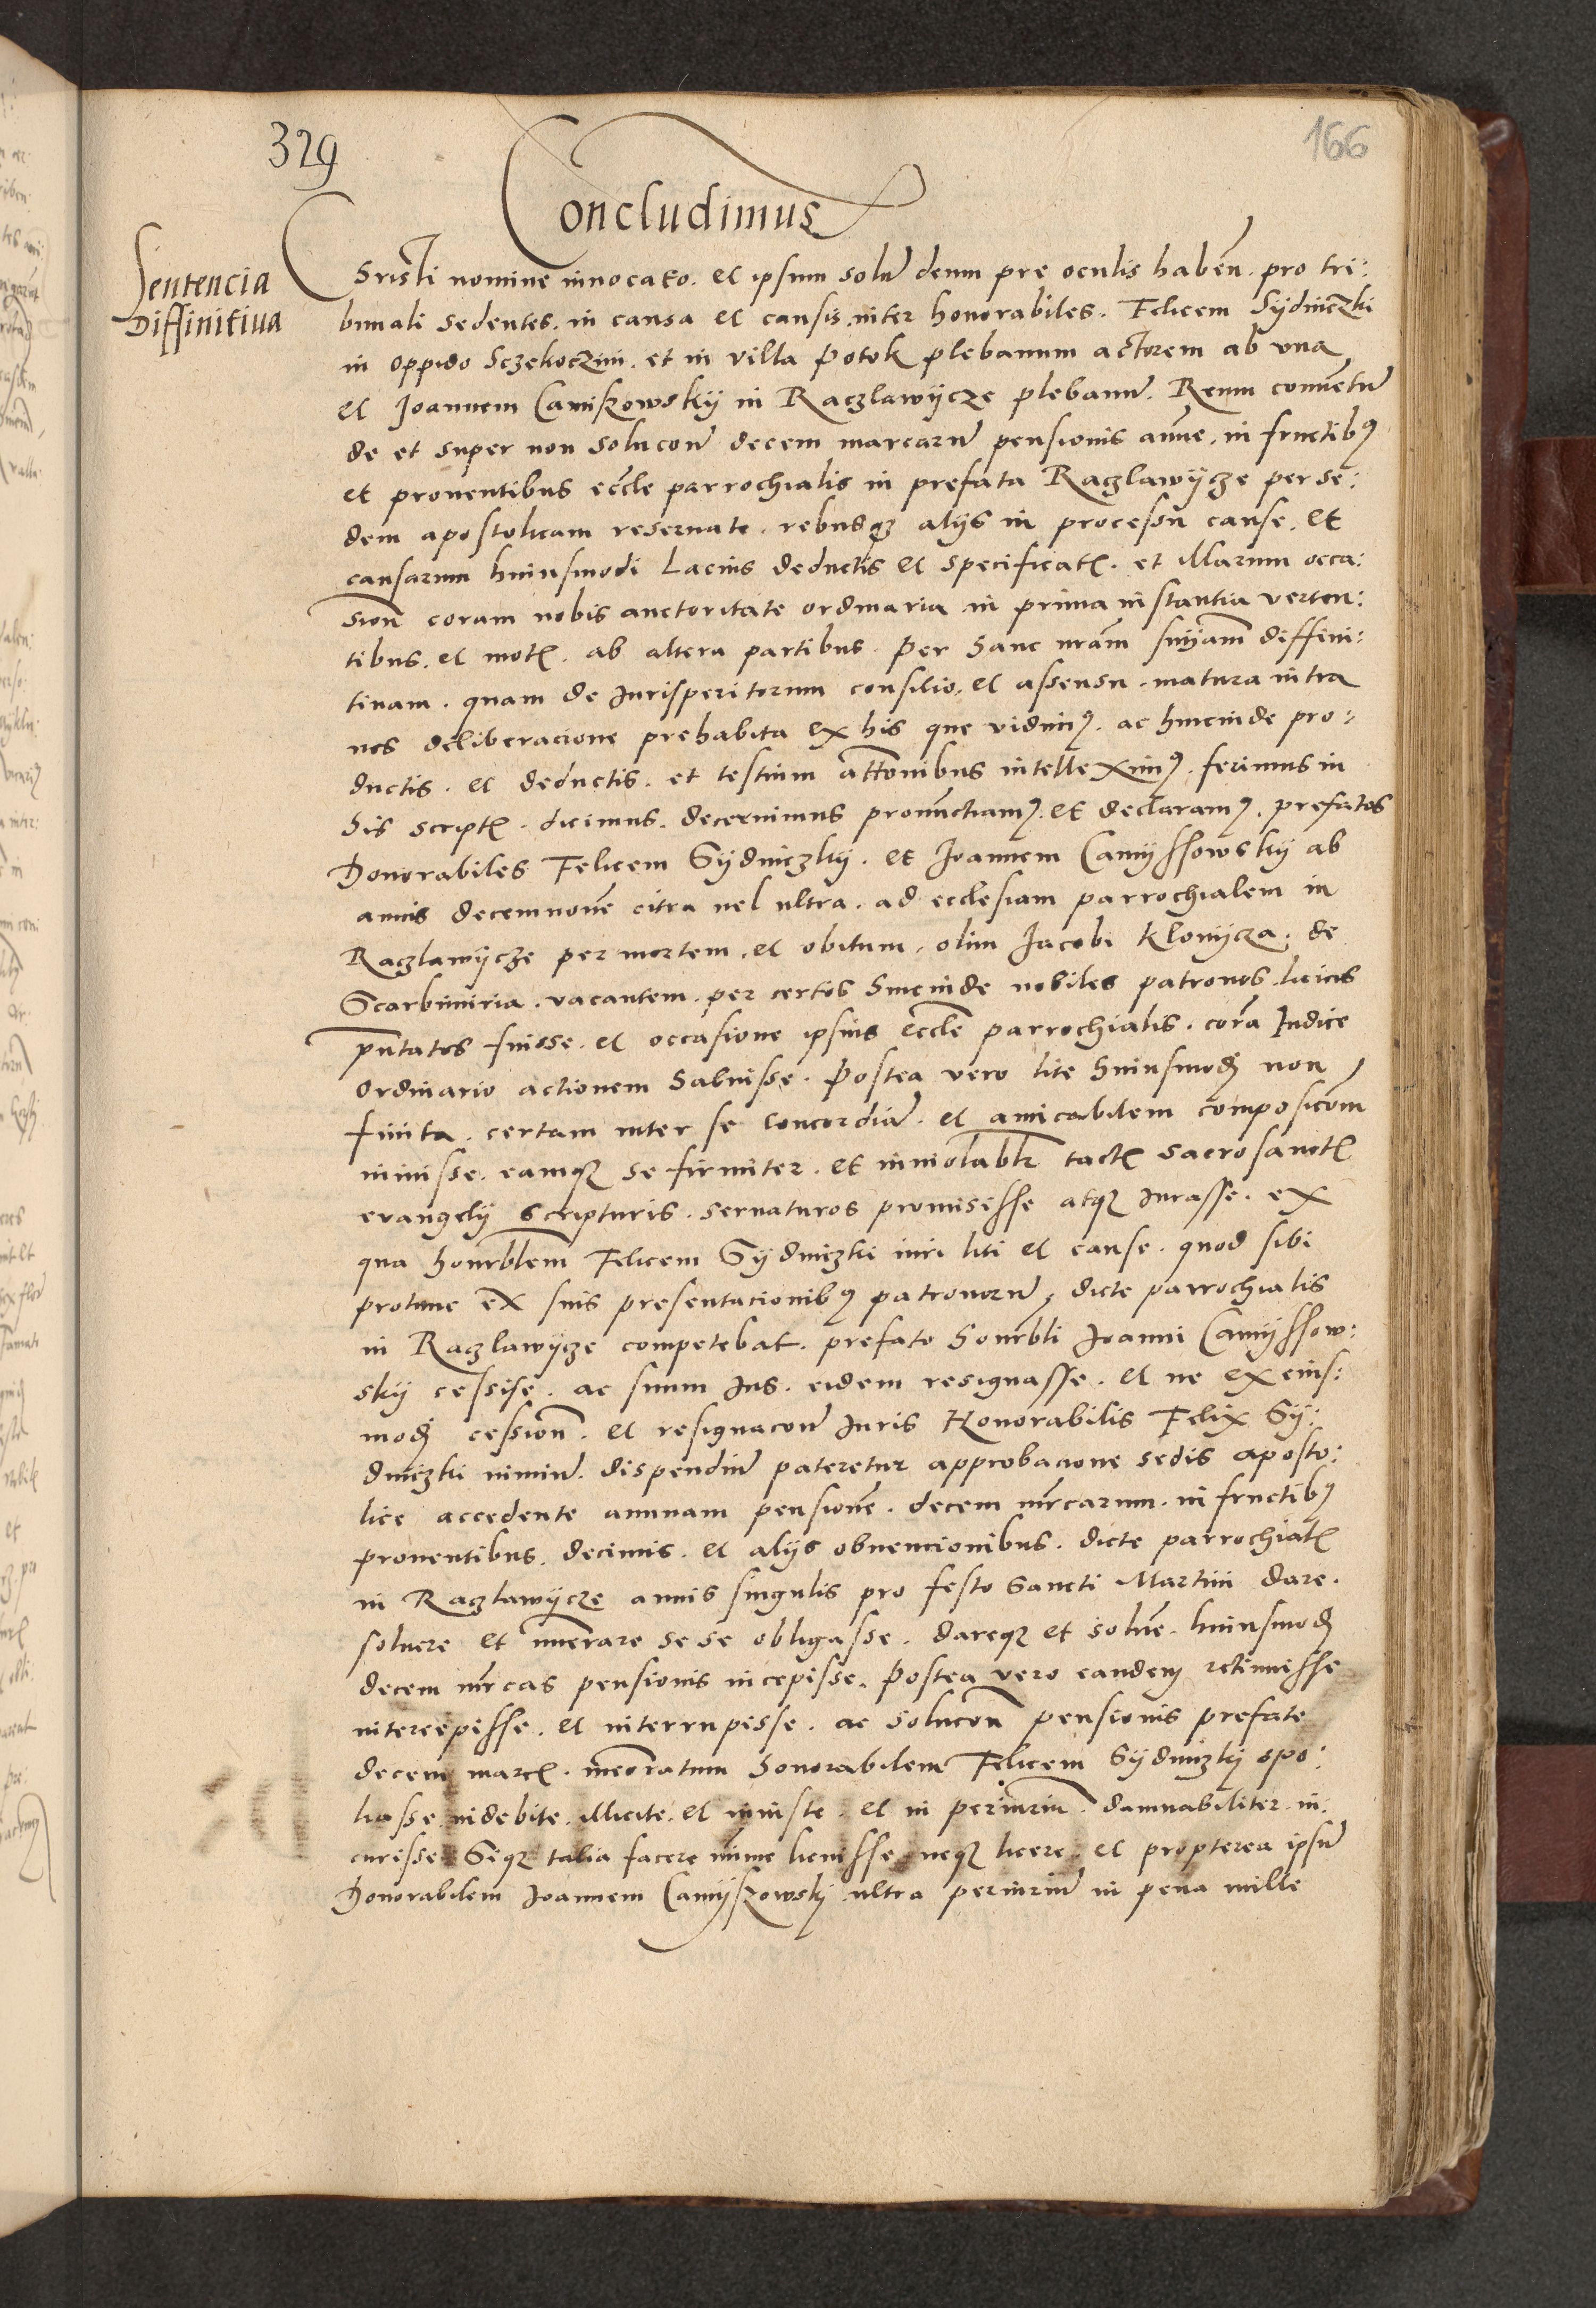 329
166
Concludimus
Sentencia
Diffinitiua
Cristi nomine inuocato. et ipsum solũ deum pre oculis habeñ. pro tri:
bunali sedentes. in causa et causis. inter honorabiles. Felicem Sydniczki
in oppido Sczekoczini. et in villa Potok plebanum actorem ab vna
et Joannem Caniszowsky in Raczlawycze plebanũ. Reum conuentũ
de et super non solucoñe decem marcarũ pensionis annue. in fructibꝰ
et prouentibus eccle parrochialis in prefata Raczlawycze per se:
dem apostolicam reseruate. rebusqꝫ alijs in processu cause. et
causarum huiusmodi Lacius deductis et specificatꝭ. et illarum occa:
sioñ coram nobis auctoritate ordinaria in prima instantia verten:
tibus. et motꝭ. ab altera partibus. per hanc nram snỹam diffini:
tiuam. quam de Jurisperitorum consilio. et assensu. matura intra
nos deliberacione prehabita ex his que vidimꝰ. ac hincinde pro:
ductis. et deductis. et testium attonibus intelleximꝰ. ferimus in
his scriptꝭ. dicimus. decernimus pronunctiamꝰ. et declaramꝰ. prefatos
Honorabiles Felicem Sydniczky. et Joannem Camyssowsky ab
annis decemnouẽ citra uel ultra. ad ecclesiam parrochialem in
Raczlawycze per mortem. et obitum. olim Jacobi Klonycza. de
Scarbimiria. vacantem. per certos hincinde nobiles patronos laicos
pñtatos fuisse. et occasione ipsius eccle parrochialis. corã Judice
Ordinario actionem habuisse. Postea vero lite huiusmodj non
finita. certam inter se concordiã. et amicabilem composicoñem
iniisse. eamqꝫ se firmiter. et inuiolablr tactꝭ sacrosanctꝭ
euangelij scripturis. seruaturos promisisse atqꝫ iurasse. ex
qua honrblem Felicem Sydnizki iuri liti et cause. quod sibi
protunc ex suis presentacionibꝰ patronorũ, dicte parrochialis
in Raczlawycze competebat. prefato honrbli Joanni Camyssow:
sky cessise. ac suum Jus. eidem resignasse. et ne ex eius:
modj cessioñ. et resignacoñe Juris Honorabilis Felix Sy:
dnizki nimiũ dispendiũ pateretur approbacione sedis aposto:
lice accedente annuam pensionẽ. decem mrcarum. in fructibꝰ
prouentibus. decimis. et alijs obuencionibus. dicte parrochiatꝭ
in Raczlawycze annis singulis pro festo Sancti Martini dare.
soluere et nũerare se se obligasse. dareqꝫ et soluẽ. huiusmodj
decem mrcas pensionis incepisse. Postea vero eandem retinuisse
intercepisse. et interrupisse. ac solucoñ pensionis prefate
decem marcꝭ. meoratum honorabilem Felicem Sydnizky spo:
liasse. indebite. illicite. et iniuste. et in periuriũ. damnabiliter. in:
curisse. Siqꝫ talia facere nime licuisse neqꝫ licere. et propterea ipsũ
Honorabilem Joannem Camyszowsky ultra periuriũ in pena mille